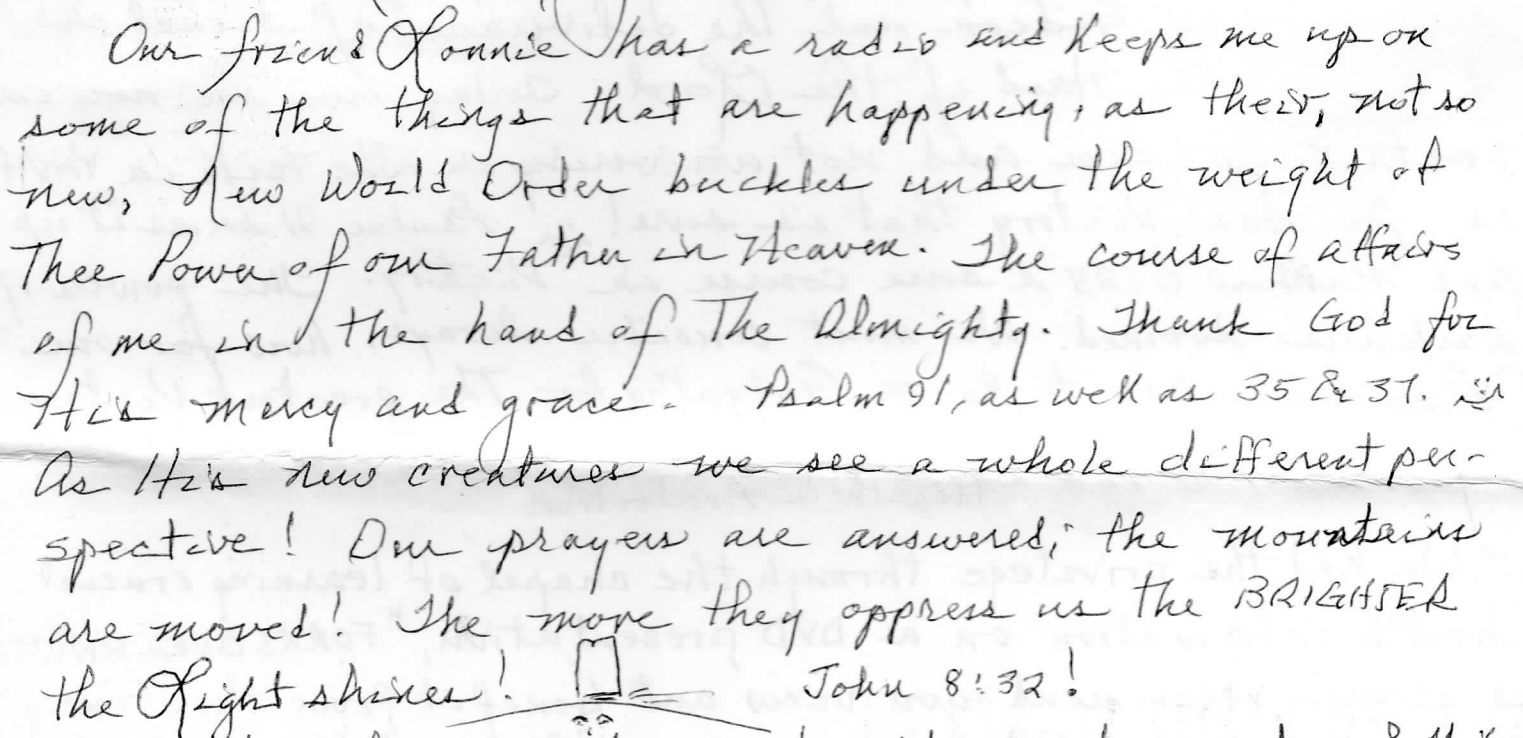 Our friend Lonnie has a radio and Keeps me up on
some of the things that are happening, as their, not so
new, New World Order buckles under the weight of
Thee Power of our Father in Heaven. The course of affairs
of me in the hand of The Almighty. Thank God for
His mercy and grace. Psalm 91, as well as 35 & 37.
As His new creatures we see a whole different per-
spective! Our prayers are answered; the mountains
are moved! The more they oppress us the BRIGHTER
the Light shines! John 8:32!